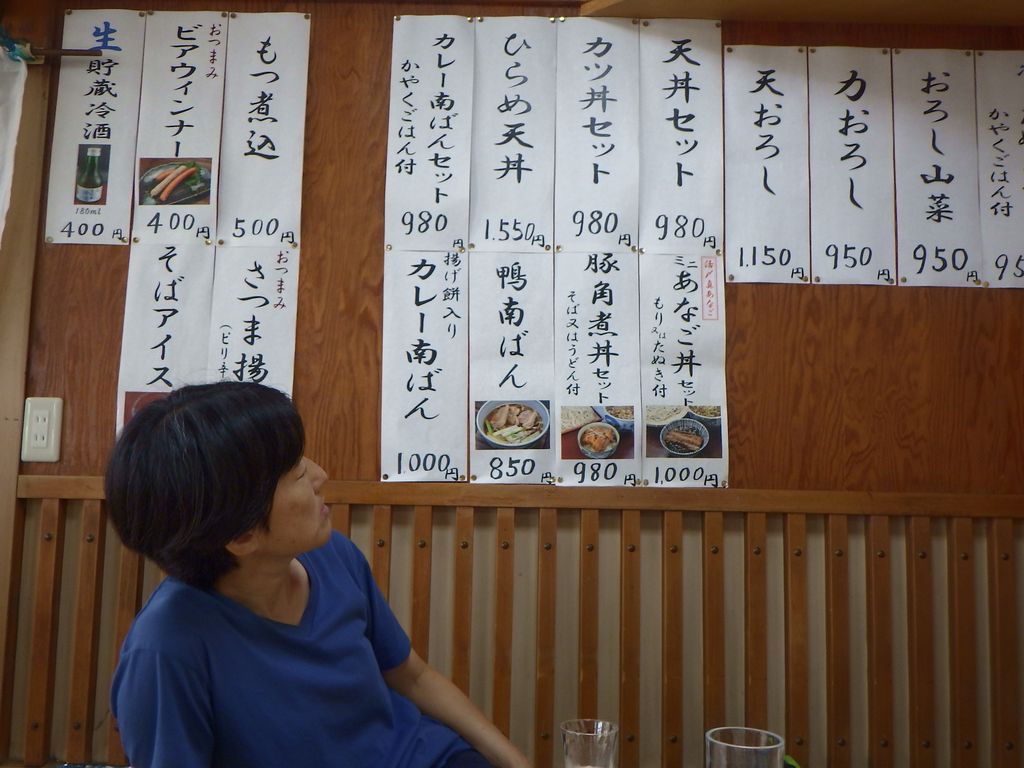 生貯蔵冷酒
180ml
400円
おつまみ
ビアウィンナー
400円
もつ煮込
500円
そばアイス
おつまみ
さつま揚
カレー南ばんセット
かやくごはん付
980円
ひらめ天丼
1.550円
カツ丼セット
980円
天丼セット
980円
天おろし
1.150円
力おろし
950円
おろし山菜
950円
かやくごはん付
95
揚げ餅入り
カレー南ばん
1000円
鴨南ばん
850円
豚角煮丼セット
そば又はうどん付
980円
ミニあなご丼セット
もり又はたぬき付
1,000円